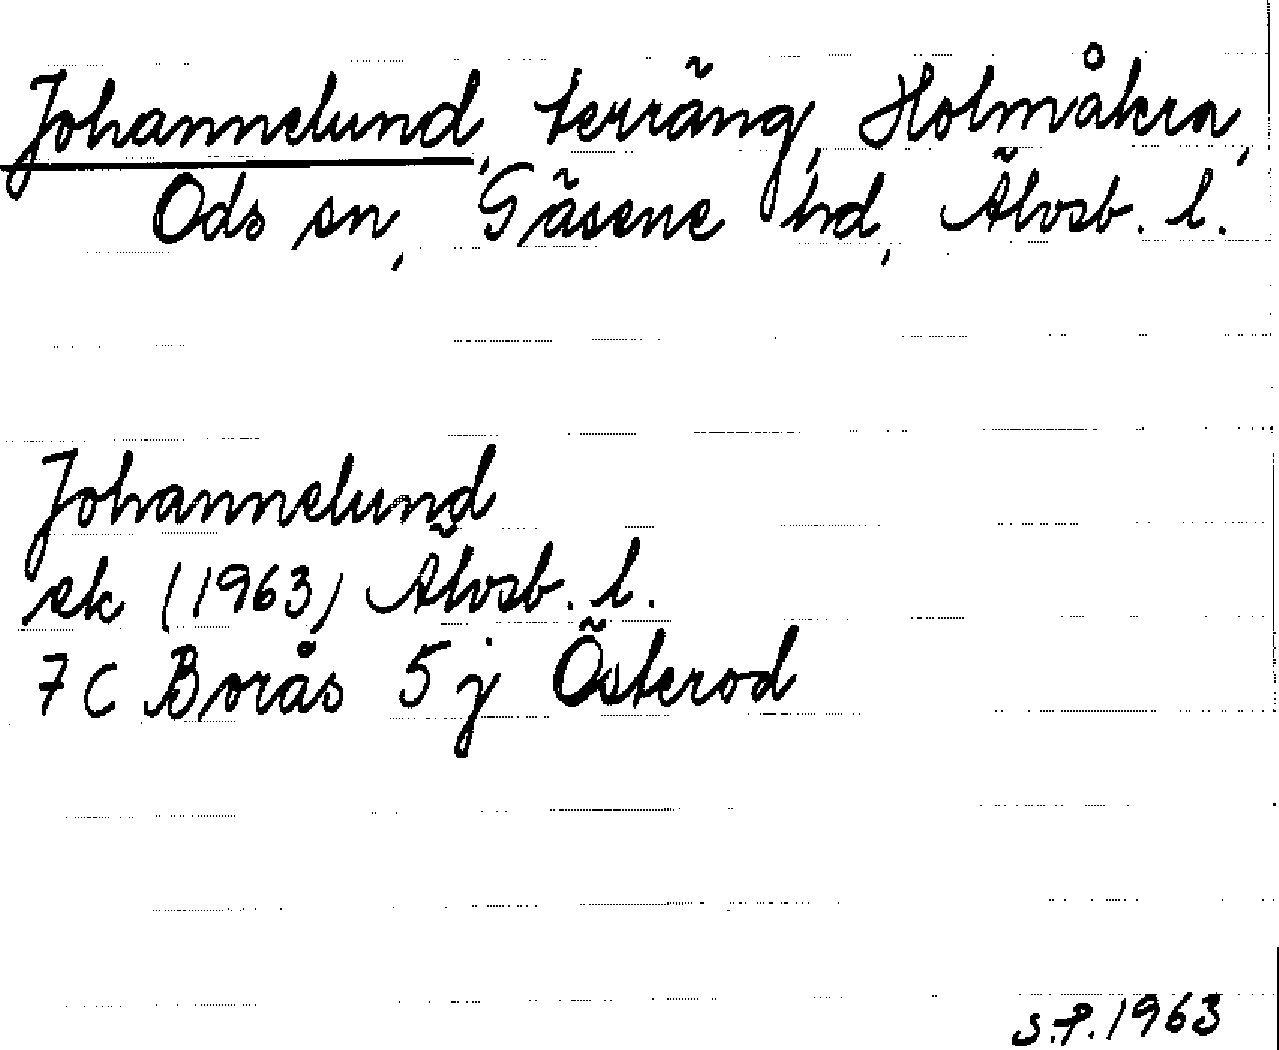 Johannelund, terräng, Holmåkra,
Ods sn, Gäsene hd, Älvsb. l.
Johannelund
ek (1963) Älvsb. l.
7 C Borås 5 j Österod
S.P. 1963